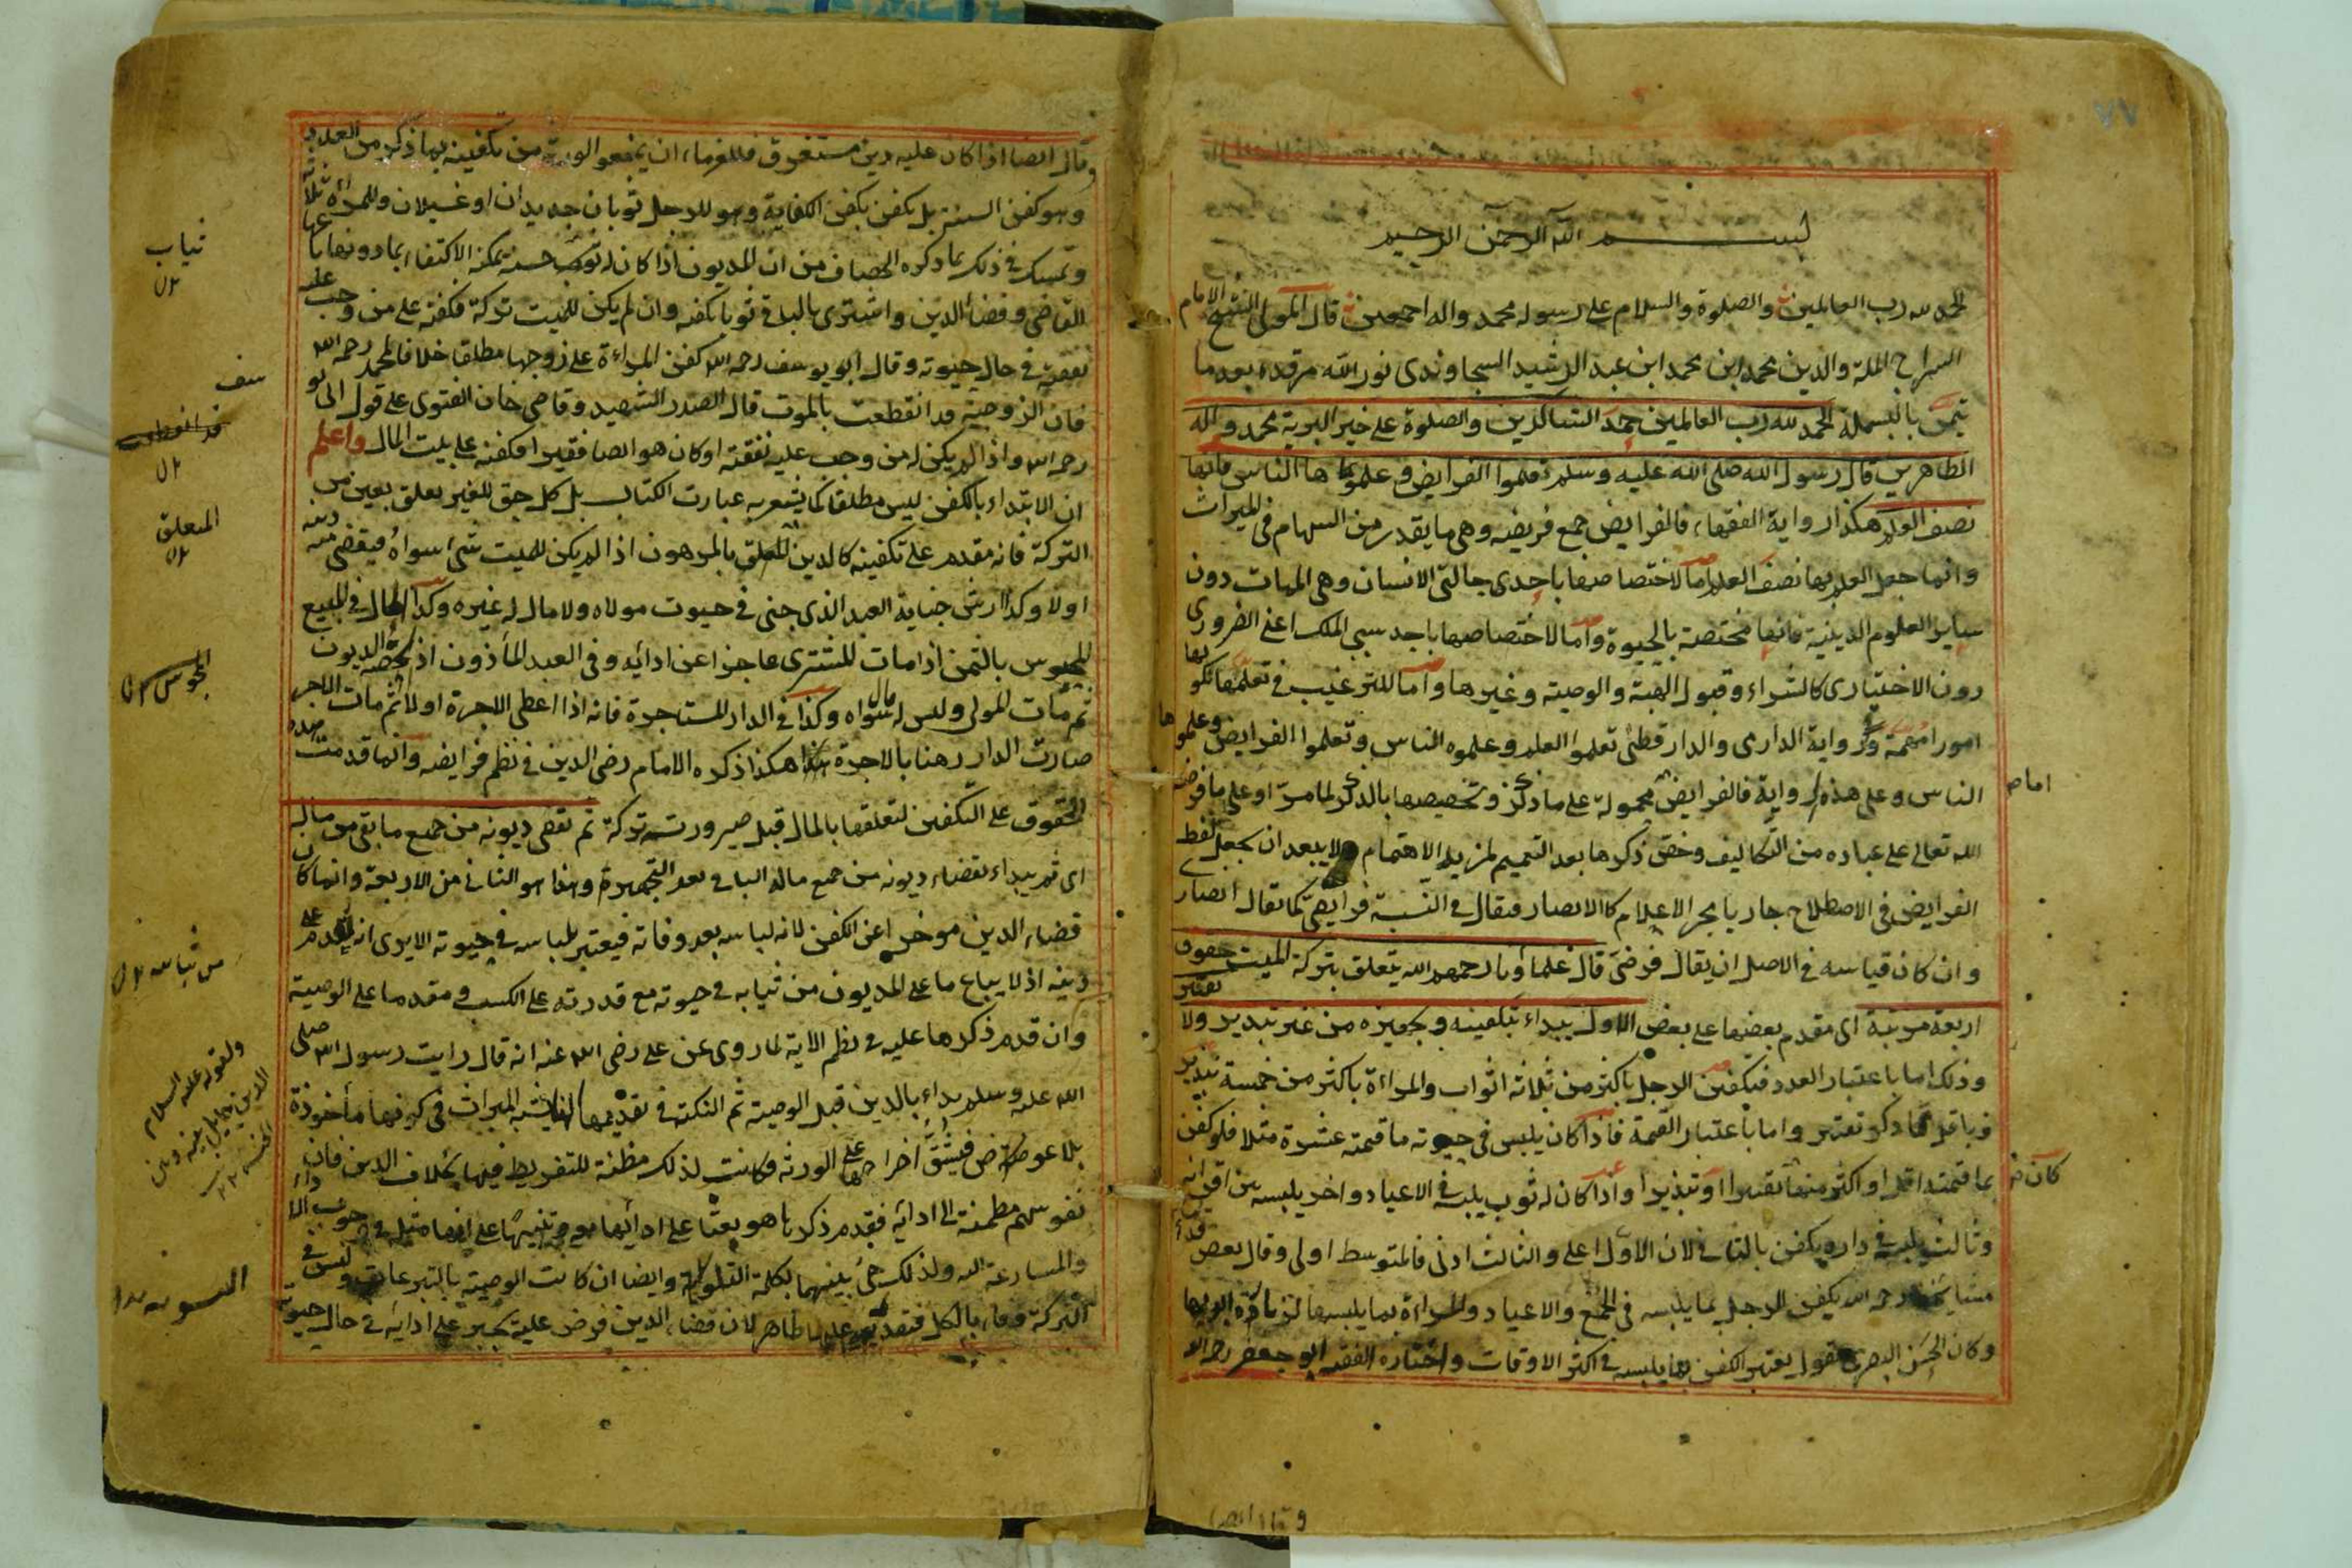 ٧٧
بســـم الله الرحمن الرحيم
الحمد لله رب العالمين والصلوة والسلام على رسوله محمد واله اجمعين قال المولى الشيخ الامام
السراج الملة والدين محمد ابن محمد ابن عبد الرشيد السجاوندى نور الله مرقده بعد ما
تيمن بالبسملة الحمد لله رب العالمين حمد الشاكرين والصلوة على خير البرية محمد واله
الطاهرين قال رسول الله صلى الله عليه وسلم تعلموا الفرايض وعلموها الناس فانها
نصف العلم هكذا رواية الفقهاء فالفرايض جمع فريضه وهى ما يقدر من السهام فى الميراث
وانما جعل العلم بها نصف العلم اما لاختصاصها باحدى حالتى الانسان وهى الممات دون
ساير العلوم الدينية فانها مختصة بالحيوة واما لاختصاصها باحد سببى الملك اعنى الضرورى
دون الاختيارى كالشراء وقبول الهبة والوصية وغيرها واما للترغيب فى تعلمها لكونها
امورا مهمة وفى رواية الدارمى والدار قطنى تعلموا العلم وعلموه الناس وتعلموا الفرايض وعلموها
الناس وعلى هذه الرواية فالفرايض محمولة على ما ذكر وتخصيصها بالذكر لما مر او على ما فرض
الله تعالى على عباده من التكاليف وخص ذكرها بعد التعميم لمزيد الاهتمام ولا يبعد ان يجعل لفظ
الفرايض فى الاصطلاح جاريا مجرى الاعلام كالانصار فيقال فى النسبة فرايضى كما يقال انصارى
وان كان قياسه فى الاصل ان يقال فرضى قال علماؤنا رحمهم الله يتعلق بتركة الميت حقوق
اربعة مرتبة اى مقدم بعضها على بعض الاول يبداء بتكفينه وتجهيزه من غير تبذير ولا تقتير
وذلك اما باعتبار العدد فتكفين الرجل باكثر من ثلاثة اثواب والمراءة باكثر من خمسة تبذير
وباقل مما ذكر تقتير واما باعتبار القيمة فاذا كان يلبس فى حيوته ما قيمته عشرة مثلا فلو كفن
بما قيمته اقل او اكثر منها تقتيرا او تبذيرا واذا كان له ثوب يلبسه فى الاعياد واخر يلبسه بين اقرانه
وثالث يلبسه فى داره يكفن بالثانى لان الاول اعلى والثالث ادنى فالمتوسط اولى وقال بعض
مشايخنا رحمه الله يكفن الرجل بما يلبسه فى الجمع والاعياد والمراءة بما يلبسها لزيارة ابويها
وكان الحسن البصرى يقول يعتبر الكفن بما يلبسه فى اكثر الاوقات واختاره الفقيه ابو جعفر رحمه الله
اما ص
كان ض
وقال ايضا
وقال ايضا اذا كان عليه دين مستغرق فللغرماء ان يمنعوا الورثة من تكفينه بما ذكر من العدد
وهو كفن السنة بل يكفن بكفن الكفاية وهو للرجل ثوبان جديدان او غسيلان وللمراة ثلاثة
وتمسك فى ذلك بما ذكره الخصاف من ان المديون اذا كان له ثوب حسن يمكنه الاكتفا بما دونها باعها
القاضى وقضاء الدين واشترى بالباقى ثوبا يكفنه وان لم يكن للميت تركة فكفنه على من وجب عليه
نفقته فى حال حيوته وقال ابو يوسف رحمه الله كفن المراءة على زوجها مطلقا خلافا لمحمد رحمه الله
فان الزوجية قد انقطعت بالموت قال الصدر الشهيد وقاضى خان الفتوى على قول ابى يو
رحمه الله واذا لم يكن له من وجب عليه نفقته او كان هو ايضا فقيرا فكفنه على بيت المال واعلم
ان الابتداء بالكفن ليس مطلقا كما يشعر به عبارت الكتاب بل كل حق للغير يعلق بعين من
التركة فانه مقدم على تكفينه كالدين المتعلق بالمرهون اذا لم يكن للميت شئ سواه فيقضى منه دينه
اولا وكذا ارش جناية العبد الذى جنى فى حيوت مولاه ولا مال له غيره وكذا الحال فى المبيع
المحبوس بالثمن اذا مات المشترى عاجزا عن ادائه وفى العبد المأذون اذا لحقه الديون
ثم مات المولى وليس له مال سواه وكذا فى الدار المستاجرة فانه اذا اعطى الاجرة اولا ثم مات الاجر
صارت الدار رهنا بالاجرة هكذا ذكره الامام رضى الدين فى نظم فرايضه وانما قدمت هذه
الحقوق على التكفين لتعلقها بالمال قبل صيرورته تركة ثم تقضى ديونه من جميع ما بقى من ماله
اى ثم يبداء بقضاء ديونه من جميع ماله الباقى بعد التجهيز وهذا هو الثانى من الاربعة وانما كان
قضاء الدين موخرا عن الكفن لانه لباسه بعد وفاته فيعتبر بلباسه فى حيوته الايرى انه يقدم على
دينه اذ لا يباع ما على المديون من ثيابه فى حيوته مع قدرته على الكسب ومقدما على الوصية
وان قدم ذكرها عليه فى نظم الاية لما روى عن على رضى الله عنه انه قال رايت رسول الله صلى
الله عليه وسلم بداء بالدين قبل الوصية ثم النكتة فى تقديمها انها يشبه الميراث فى كونها مأخوذة
بلا عوض فيشق اخراجها على الورثة فكانت لذلك مظنة للتفريط فيها بخلاف الدين فان
نفوسهم مطمئنة الى ادائه فقدم ذكرها هو بعثا على ادائها معه وتنبيها على انها مثله فى وجوب الاداء
والمسارعة اليه ولذلك جئ بينهما بكلمة التسوية وايضا ان كانت الوصية بالتبرعات وليس فى
التركة وفاء بالكل فتقديمه عليها ظاهر لان قضاء الدين فرض عليه يجبر على ادائه فى حال حيوته
ثياب
المتعلق
المحبوس
من ثيابه
ولقوله عليه السلام
الدين حايل بينه وبين
الجنة